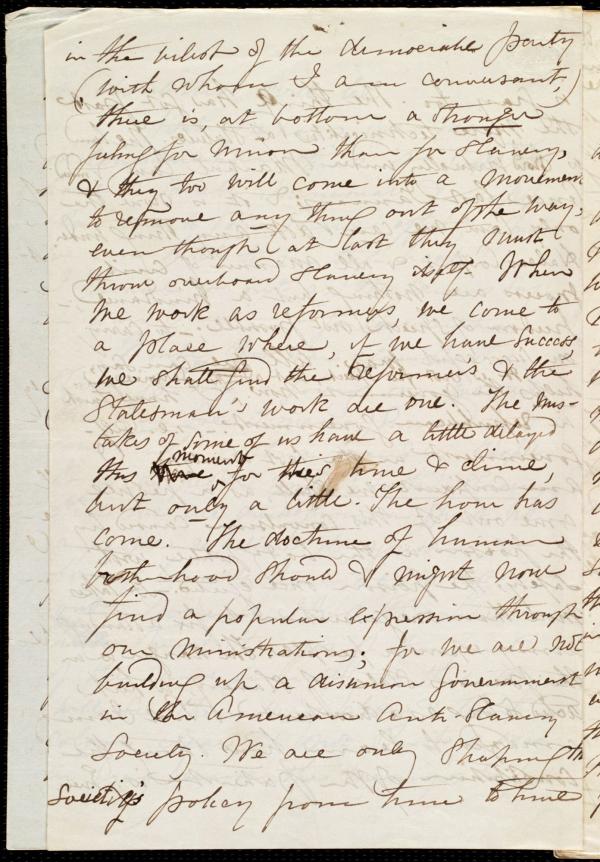 in the vilest of the democratic party
(with whom I am conversant,)
there is, at bottom a stronger
feeling for Union than for Slavery,
& they too will come into a movement
to remove any thing out of the way,
even though (at last they must
throw overboard Slavery itself. When
we work as reformers, we come to
a place where, if we have success,
we shall find the reformer's & the
Statesman's work are one. The mis-
takes of some of us have a little delayed
this moment for this time & clime,
but only a little. The hour has
come. - The doctrine of human
brotherhood should & might now
find a popular expression through
our ministrations; for we are not
building up a disunion Government
in the American Anti-Slavery
Society. We are only shaping the
Society's policy from time to time